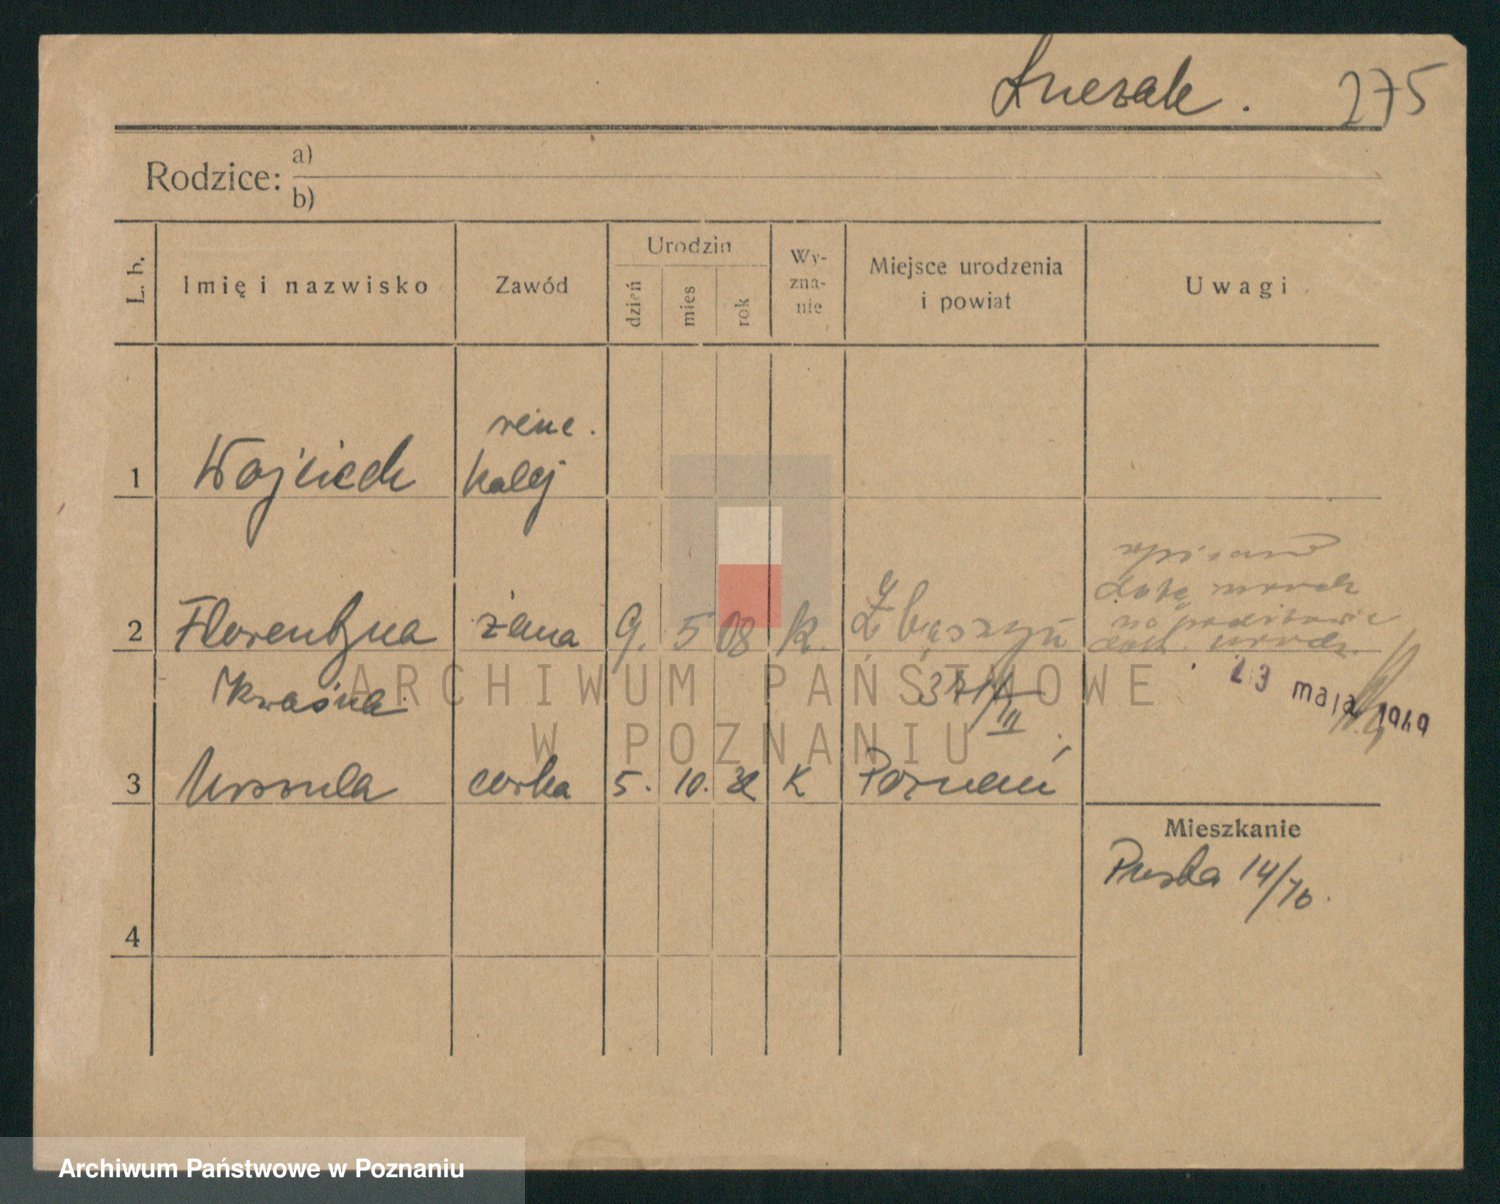 Łuczak. 275
Rodzice: a)
b)
L. b. Imię i nazwisko Zawód Urodzin dzień mies rok Wy-zna-nie Miejsce urodzenia i powiat Uwagi
1 Wojciech kolej
2 Florentyna żona 9. 5 08 k. Zbąszyń
wpisano
datę urodz
na podstawie
dok. urodz.
Kwaśna
23 maja 1949
3 Urszula corka 5. 10. K Poznań
Mieszkanie
14/70.
4
ARCHIWUM PAŃSTWOWE
W POZNANIU
Archiwum Państwowe w Poznaniu